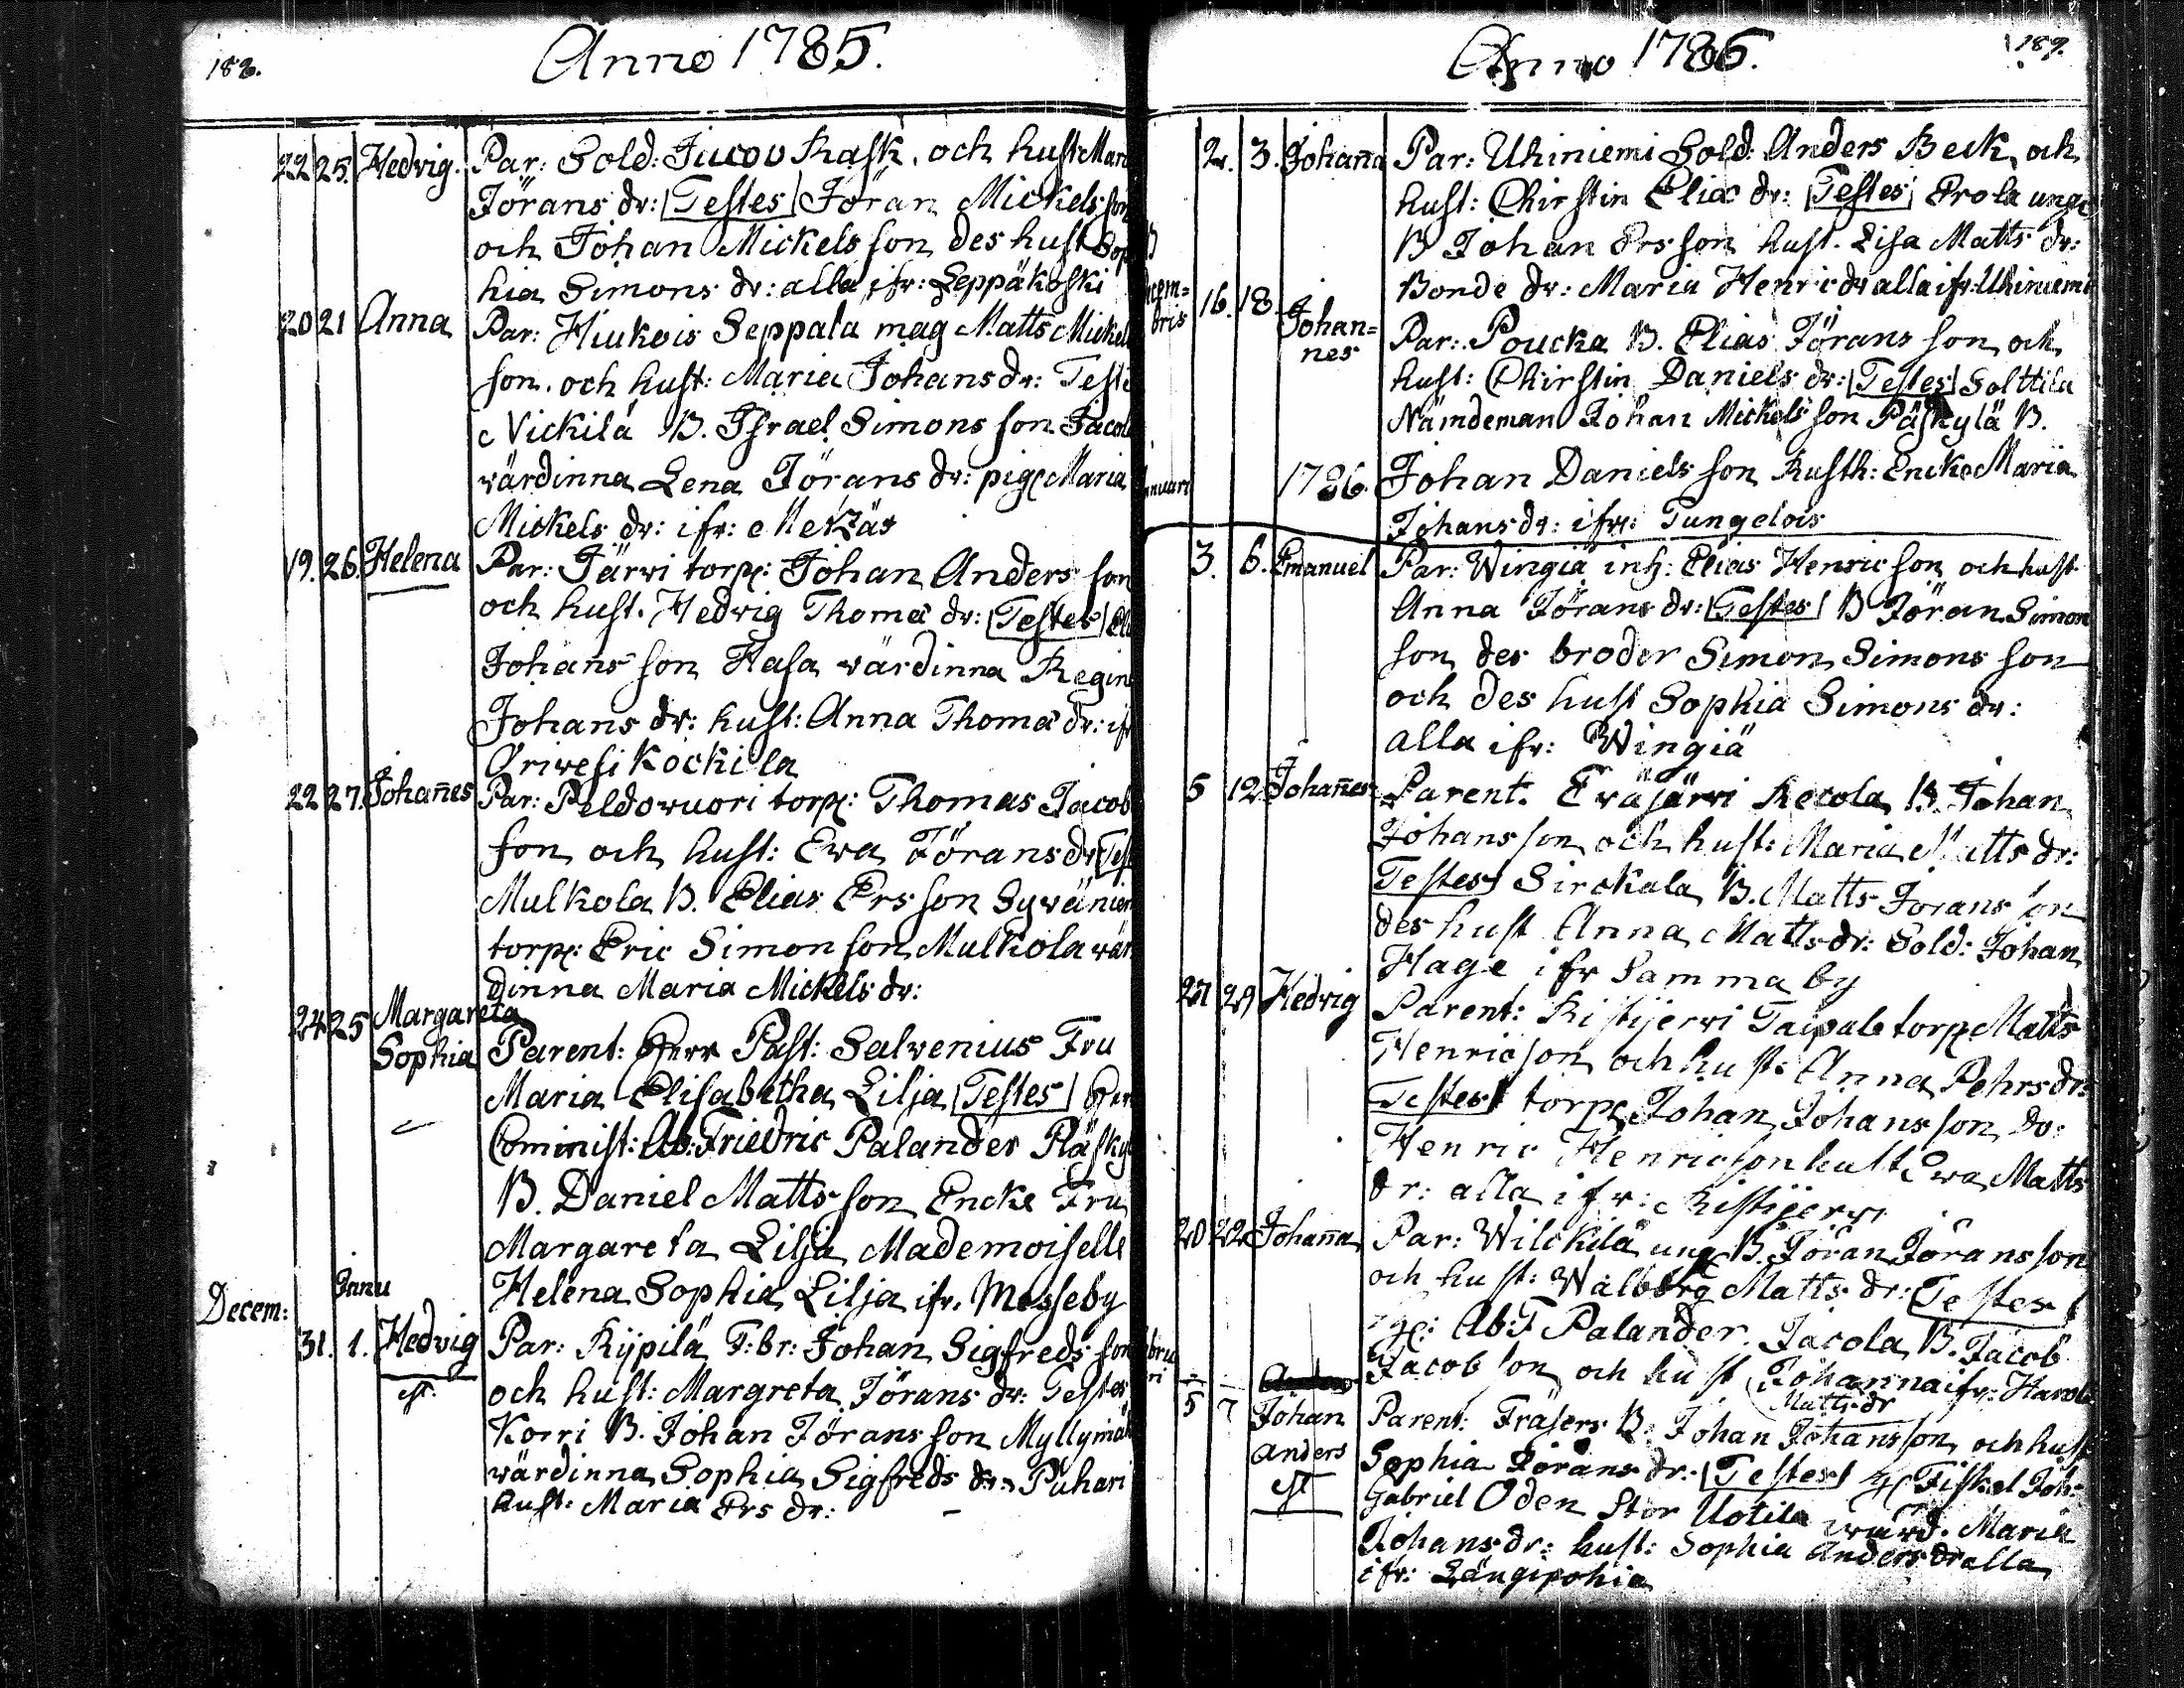 188.
Anno 1785.
22 25. Hedvig. Par: Sold: Jacob Rask. och hust Mar
Jörans dr: Testes Jöran Mickels son
och Johan Mickels son des hust Sop
hia Simons dr: alla ifr: Seppäkoski
20 21 Anna Par: Hiukois Seppala mag Matts Mickel
son. och hust: Maria Johans dr: Teste
Nickilä B. Israel Simons son Jacol
wärdinna Lena Jörans dr: pig Maria
Mickels dr: ifr:
19. 26. Helena Par: Järvi torp: Johan Anders son
och hust. Hedvig Thomæ dr: Testes Eli
Johans son Hasa wärdinna Regin
Johans dr: hust: Anna Thomæ dr: ifr
Oriwesi Kockila
22 27. Johañes Par: Peldowuori torp: Thomas Jacob
son och hust: Ewa Jörans dr Test
Mulkola B. Elias Ers son Sywänien
torp: Eric Simon son Mulkola wär
dinna Maria Mickels dr:
24 25 Margareta
Sophia Parent: Herr Past: Salvenius Fru
Maria Elisabetha Lilja Testes Herr
Cominist: Ab: Friedric Palander Päsky
B. Daniel Matts son Encke Fru
Margareta Lilja Mademoiselle
Janu Helena Sophia Lilja ifr. Messeby
Decem:
31. 1. Hedvig Par: Kypilä F:br: Johan Sigfreds son
och hust: Margreta Jörans dr: Testes
Korri B. Johan Jörans son Myllymä
wärdinna Sophia Sigfreds dr: Puhari
hust: Maria Ers dr:
189.
Anno 1786.
2. 3. Johaña Par: Uhiniemi Sold: Anders Beck och
hust: Chirstin Eliæ dr: Testes Erola unge
B Johan Ersson hust. Lisa Matts dr:
Bonde dr: Maria Henric dr alla ifr: Uhiniemi
cem=
bris 16. 18. Johan=
nes Par: Poucka B. Elias Jörans son och
hust: Chirstin Daniels dr: Testes Solttila
Nämdeman Johan Mickels son Päskylä B.
anuari 1786. Johan Daniels son Rusth: Encke Maria
Johans dr: ifr: Pungelois
3. 6. Emanuel Par: Wingiä inh: Elias Henric son och hust
Anna Jörans dr: Testes B Jöran Simon
son des broder Simon Simons son
och des hust Sophia Simons dr:
alla ifr: Wingiä
5 12. Johañes Parent. Eräjärvi Recola B. Johan
Johans son och hust: Maria Matts dr:
Testes Sirckala B. Matts Jorans son
des hust Anna Matts dr: Sold: Johan
Hage ifr Samma by
27 29 Hedvig Parent: Ristijervi Taipale torp Matts
Henricson och hust: Anna Pehrs dr:
Testes torp Johan Johans son Do:
Henric Henricson hust Ewa Matts
dr: alla ifr: Ristijervi
20 22 Johaña Par: Wilckilä ung B. Jöran Jörans son
och hust: Walborg Matts dr: Testes
Ab: F Palander Jacola B. Jacob
Jacob son och hust Johanna ifr: Harola
Matts dr
bru
ri
5 7 Johan
Anders Parent: Fräsers B: Johan Johans son och hust
Sophia Jörans dr: Testes Fiskel Joh:
Gabriel Oden Stor Uotila wärd. Maria
Johans dr: hust: Sophia Anders dr alla
ifr: Längipohia